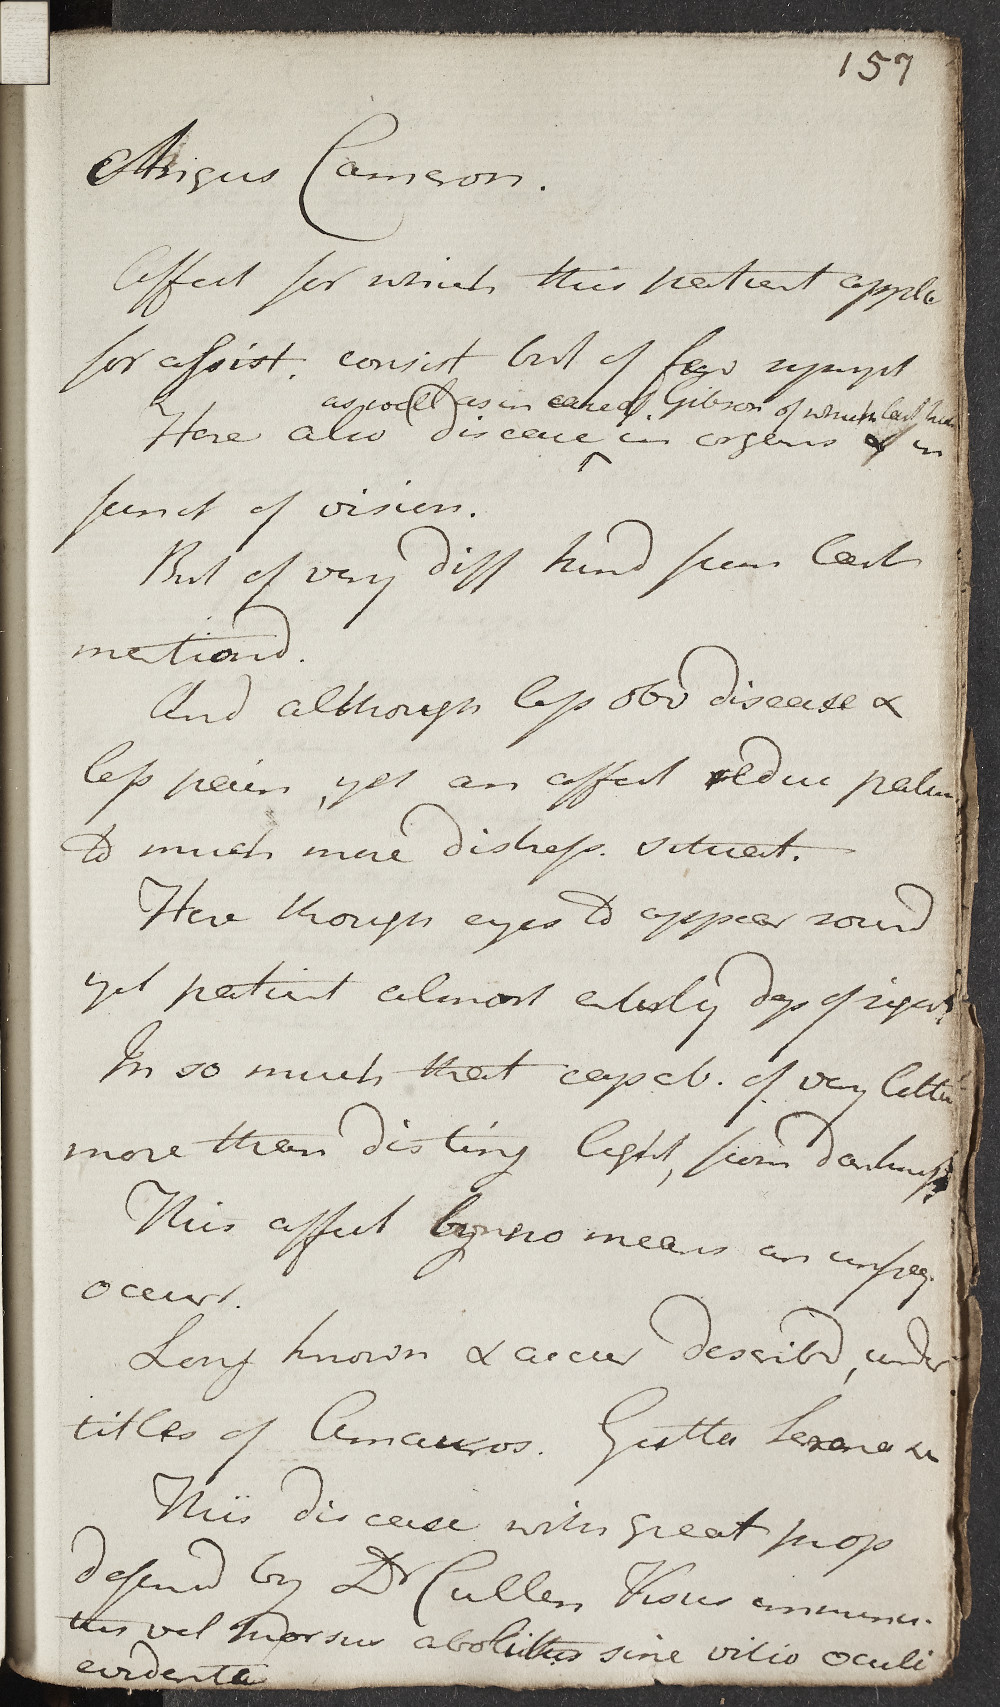 157
Angus Cameron.
Affect for which this patient apply
for assist. consist but of few sympt
as well as in case of Gibson of whom last
Here also disease ^ in organs & in
funct of vision.
But of very diff kind from last
mentiond.
And although less obv disease &
less pain, yet an affect reduc
to much more distress. situat.
Here though eyes to appear sound
yet patient almost entirely dep of sight.
In so much that capab. of very little
more than disting light, from darkness
This affect by no means an unfreq.
occurr.
Long known & accur describd, under
titles of Amauros. Gutta Serena &c
This disease with great prop
defind by Dr Cullen Visus imminu-
tus vel prorsus abolitus sine vitio oculi
evidente